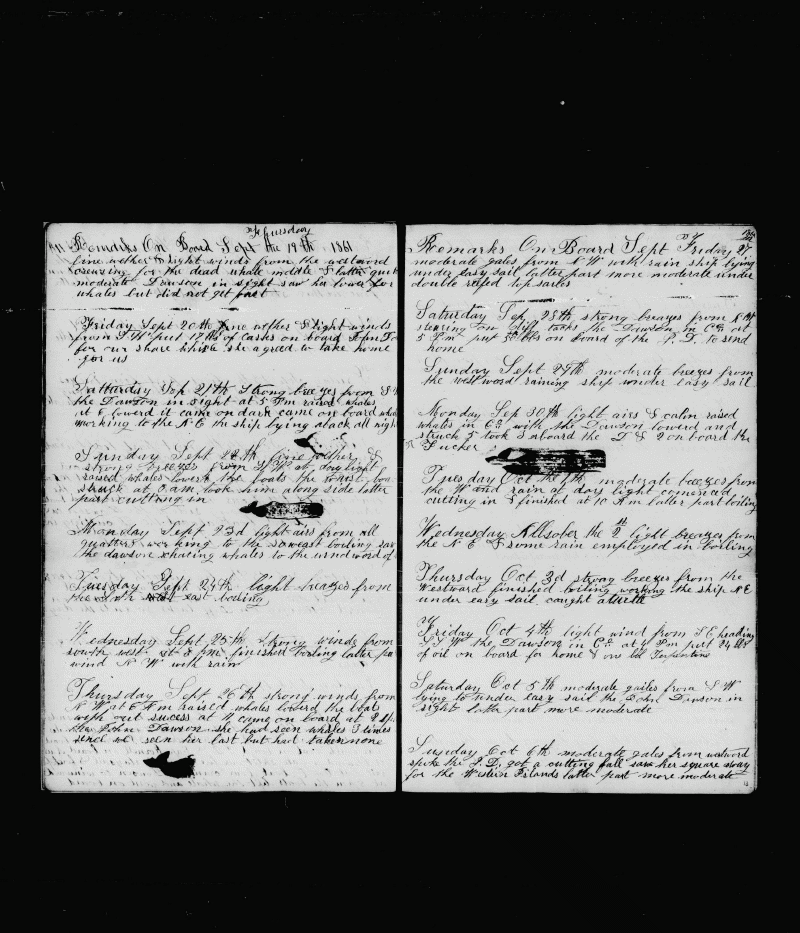 Thursday
Remarks On Board Sept the 19th 1861
fine wether & light winds from the westword
cruising for the dead whale midle & latter
moderate Dawson in sight saw her lower for
whales but did not get fast
Friday Sept 20th fine wether & light winds
from S W put of casks on board John
for our share she agreed to take home
for us
Satturday Sep 21th strong breezes from S
the Dawson in sight at 5 Pm raised whales
at 6 lowerd it came on dark came on board
working to the N E the ship lying aback all nigh
Sunday Sept 22th fine wether &
strong breezes from S W at day light
raised whales lowerd the boats the waist boa
struck at 8 am took him along side latter
part cutting in
Monday Sept 23d light airs from all
quatters working to the boiling saw
the dawson chasing whales to the windword of
Tuesday Sept 24th light breazes from
the east boiling
Wednesday Sept 25th strong winds from
south west at 8 pm finished boiling latter pa
wind N W with rain
Thursday Sept 26th strong winds from
N W at 6 A m raised whales lowerd the boats
with out sucess at 11 came on board at
the John Dawson she had seen whales 3 times
senc we seen her last but had taken none
Remarks On Board Sept Friday 27
moderate gales from N W with rain ship lying
under easy sail latter part more moderate under
double reefed top sailes
Saturday Sep 28th strong breazes from N W
stering on diff tacks the Dawson in Co at
5 Pm put 50 bbls on board of the J. D. to send
home
Sunday Sept 29th moderate breezes from
the westword raining ship under easy sail
Monday Sep 30th light airs & calm raised
whales in Co with the Dawson lowerd and
struck 5 took 3 aboard the D & 2 on board the
Tucker
Tuesday Oct the 1th moderate breezes from
the W and rain at day light comenced
cutting in & finished at 10 A m latter part boiling
Wednesday the 2d light breazes from
the N E & some rain employed in boiling
Thursday Oct 3d strong breezes from the
Westward finished boiling working the ship N E
under easy sail caught
Friday Oct 4th light wind from S E heading
S by W the Dawson in Co at 4 Pm put 24 bbls
of oil on board for home & one bbl Torpentine
Saturday Oct 5th moderate gailes from S W
lying to under easy sail the John Dawson in
sight latter part more moderate
Sunday Oct 6th moderate gales from westword
spoke the J. D. got a cutting fall saw her square away
for the Western Islands latter part more moderate